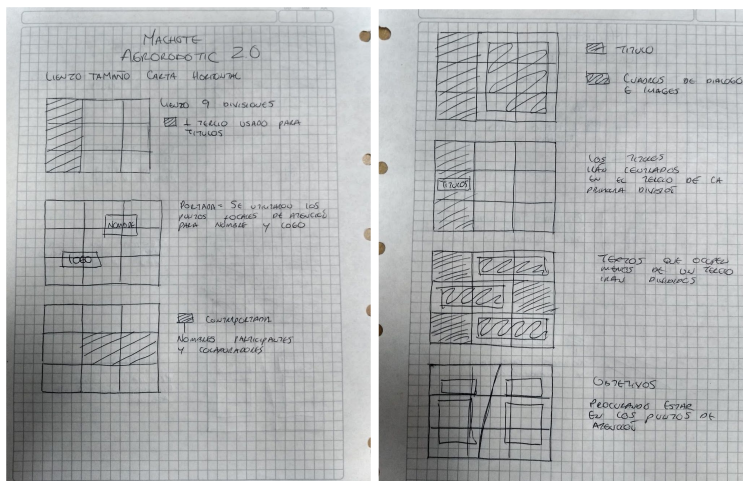 MACHOTE
AGROROBOTIC 2.0
LIENZO TAMAÑO CARTA HORIZONTAL
LIENZO 9 DIVISIONES
1 TERCIO USADO PARA
TITULOS
PORTADA = SE UTILIZARON LOS
PUNTOS FOCALES DE ATENCIÓN
PARA NOMBRE Y LOGO
NOMBRE
LOGO
CONTRAPORTADA
NOMBRES PARTICIPANTES
Y COLABORADORES
TITULO
CUADROS DE DIALOGO
E IMAGES
LOS TITULOS
IRAN CENTRADOS
EN EL TERCIO DE LA
PRIMERA DIVISIÓN
TITULOS
TEXTOS QUE OCUPEN
MENOS DE UN TERCIO
IRAN DIVIDIDOS
OBJETIVOS
PROCURANDO ESTAR
EN LOS PUNTOS DE
ATENCIÓN